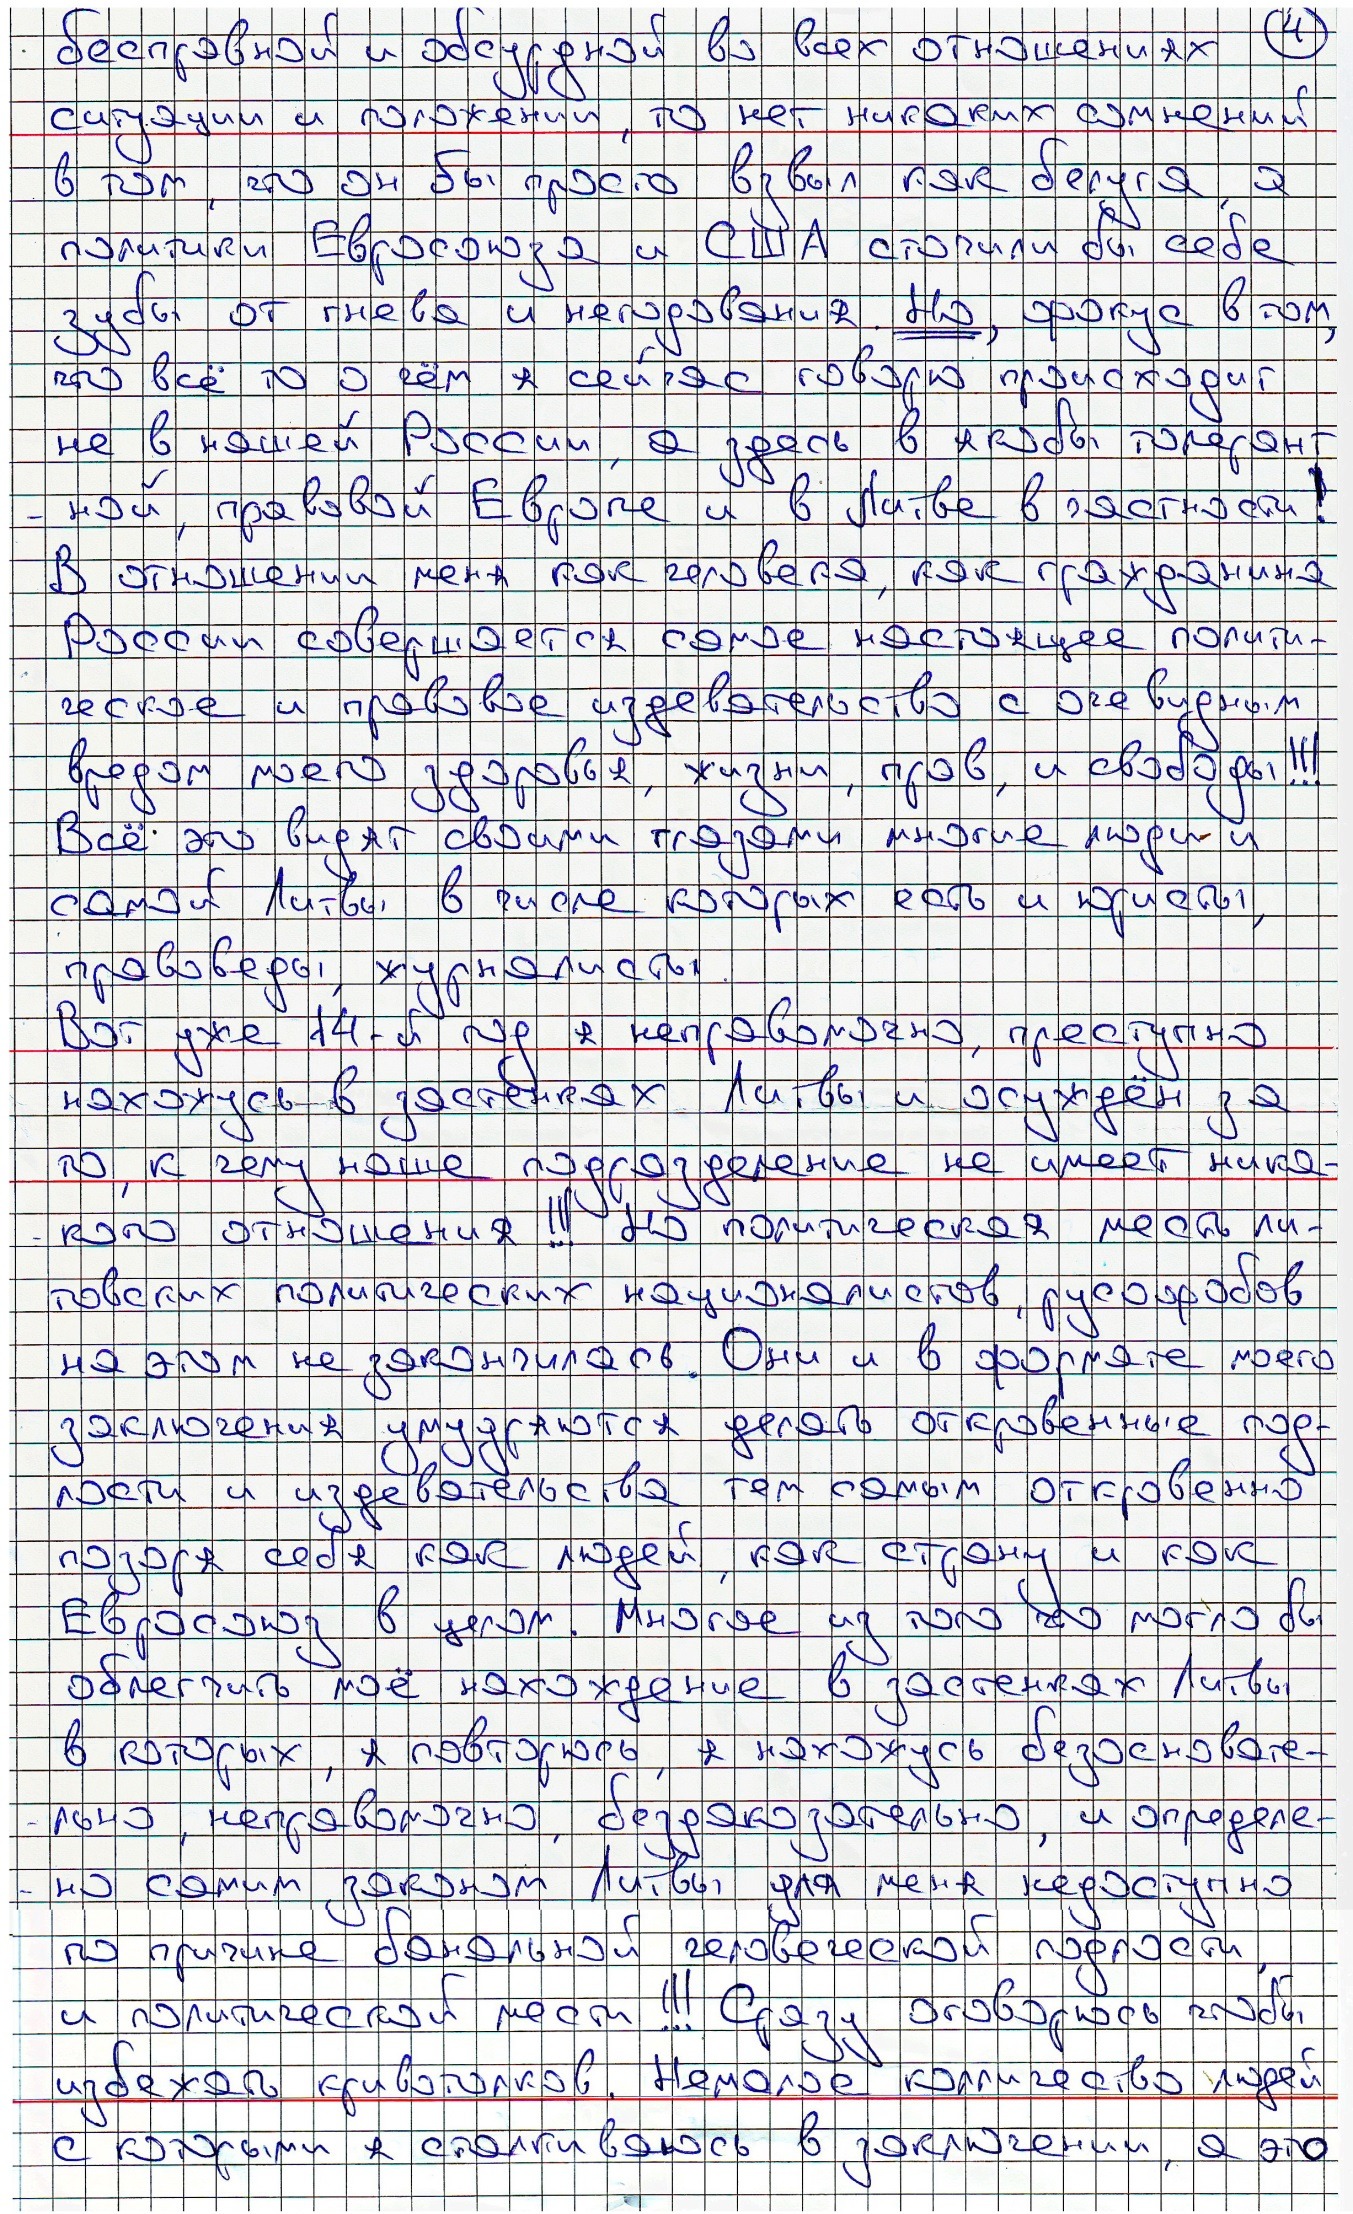 4
бесправной и обсурдной во всех отношениях
ситуации и положении, то нет никаких сомнений
в том, что он бы просто взвыл как белуга, а
политики Евросоюза и США сточили бы себе
зубы от гнева и негодования. Но, фокус в том,
что всё то о чём я сейчас говорю происходит
не в нашей России, а здесь в якобы толерант
- ной, правовой Европе и в Литве в частности!
В отношении меня как человека, как гражданина
России совершается самое настоящее полити-
ческое и правовое издевательство с очевидным
вредом моего здоровья, жизни, прав, и свободы!!!
Всё это видят своими глазами многие люди и
самой Литвы в числе которых есть и юристы,
правоведы, журналисты.
Вот уже 14-й год я неправомочно, преступно
нахожусь в застенках Литвы и осуждён за
то, к чему наше подразделение не имеет ника-
- кого отношения!!! Но политическая месть ли-
товских политических националистов, русофобов
на этом не закончилась. Они и в формате моего
заключения умудряются делать откровенные под-
лости и издевательства тем самым откровенно
позоря себя как людей, как страну и как
Евросоюз в целом. Многое из того что могло бы
облегчить моё нахождение в застенках Литвы
в которых, я повторюсь, я нахожусь безосновате-
- льно, неправомочно, бездоказательно, и определе-
- но самим законом Литвы для меня недоступно
по причине банальной человеческой подлости,
и политической мести!!! Сразу оговорюсь чтобы
избежать кривотолков. Немалое колличество людей
с которыми я сталкиваюсь в заключении, а это